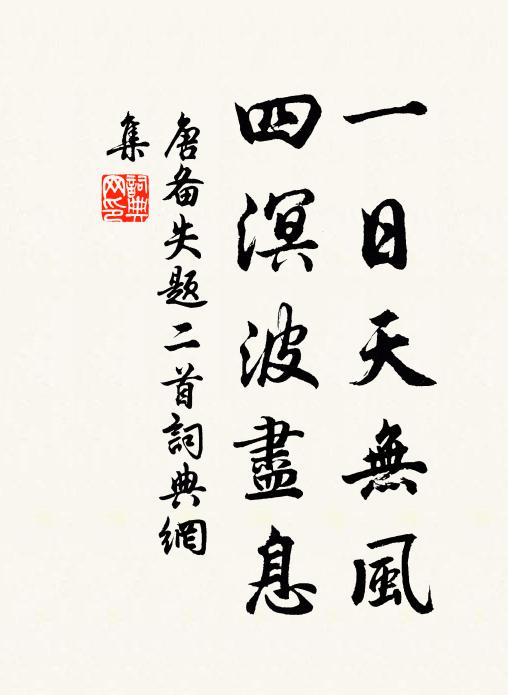 一日天無風
四溟波盡息
唐备失题二首詞典網
集
詞典
网印